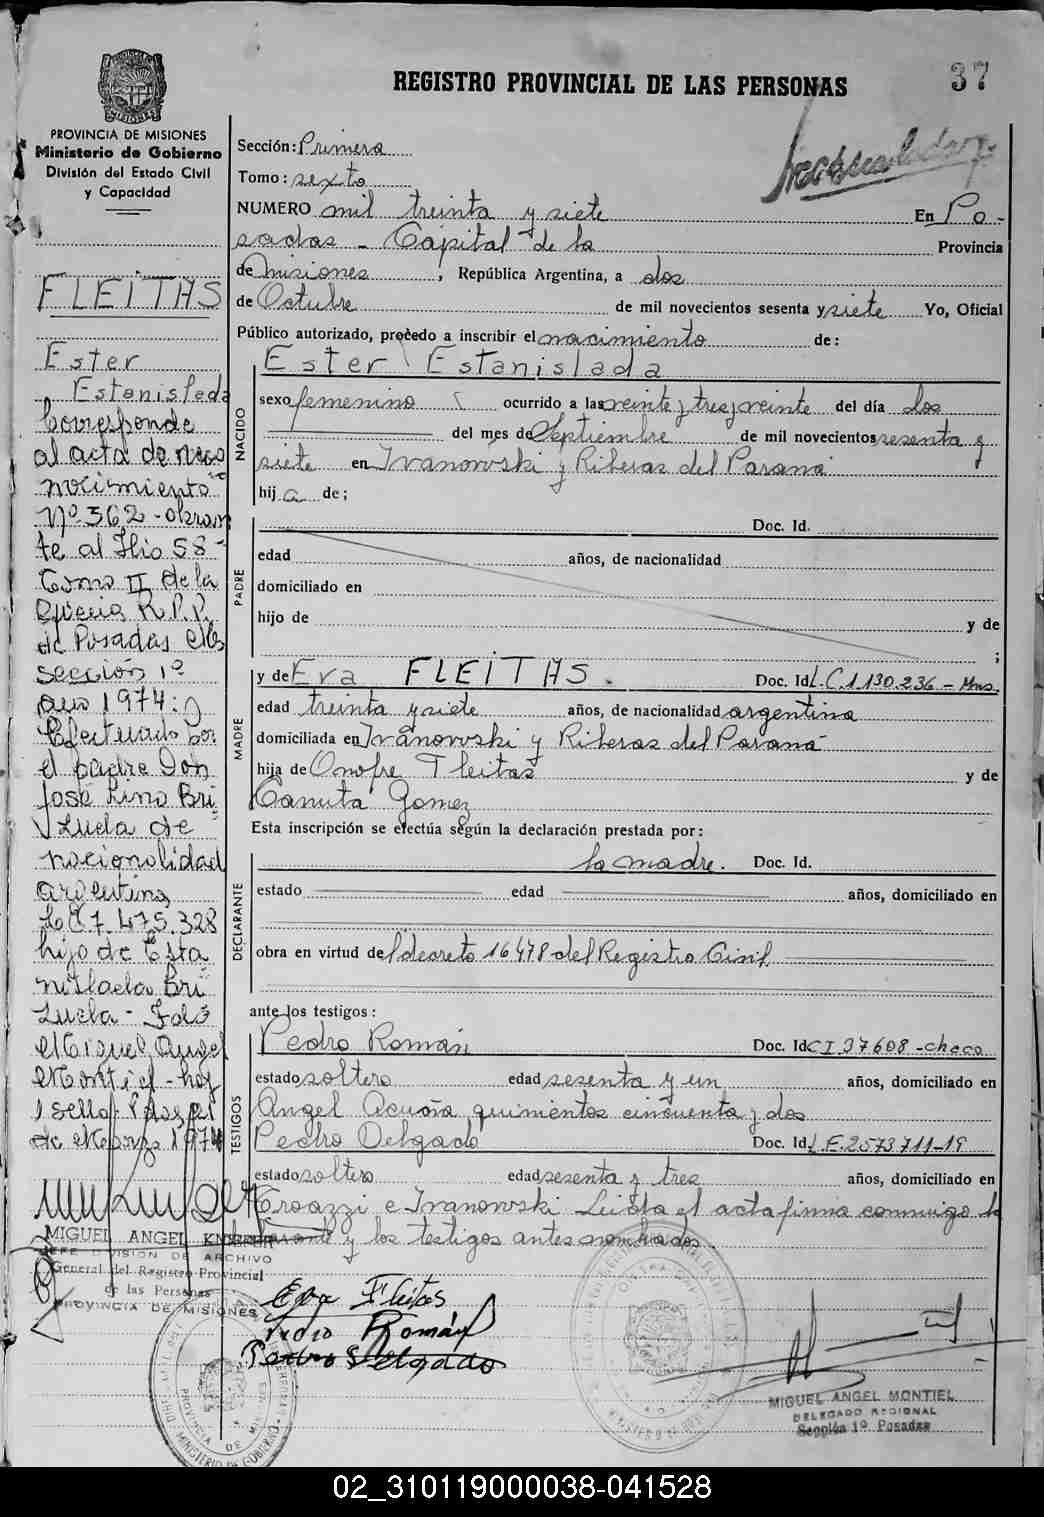 37
REGISTRO PROVINCIAL DE LAS PERSONAS
PROVINCIA DE MISIONES
Ministerio de Gobierno
División del Estado Civil
y Capacidad
FLEITAS
Ester
Estanisleda
Corresponde
al acta de reco
nocimiento
Nº 362 - obran
te al folio 58 -
tomo II de la
R.P.P.
de Posadas
sección 1º
año 1974:
Efectuado por
el padre Don
José Lino Bri
zuela de
nacionalidad
argentina
7.475.328
hijo de Esta
nislada Bri
zuela - Foló
Miguel Angel
Montiel - hay
1 sello
de Marzo 1974
MIGUEL ANGEL
JEFE DIVISION DE ARCHIVO
General del Registro Provincial
de las Personas
PROVINCIA DE MISIONES
Sección: Primera
Tomo: sexto
NUMERO mil treinta y siete En Po -
sadas - Capital de la Provincia
de Misiones, República Argentina, a dos
de Octubre de mil novecientos sesenta y siete Yo, Oficial
Público autorizado, procedo a inscribir el nacimiento de:
NACIDO
Ester Estanislada
sexo femenino ocurrido a las veinte y tres y veinte del día dos
del mes de Septiembre de mil novecientos sesenta y
siete en Ivanowski y Riberas del Paraná
hij a de;
PADRE
Doc. Id.
edad años, de nacionalidad
domiciliado en
hijo de y de
;
MADRE
y de Eva FLEITAS. Doc. Id L.C.1.130.236 - Mns.
edad treinta y siete años, de nacionalidad argentina
domiciliada en Ivanowski y Riberas del Paraná
hija de Onofre Fleitas y de
Canuta Gomez
Esta inscripción se efectúa según la declaración prestada por:
DECLARANTE
la madre. Doc. Id.
estado edad años, domiciliado en
obra en virtud del decreto 16478 del Registro Civil
ante los testigos:
TESTIGOS
Pedro Román Doc. Id CI 37608 - chaco
estado soltero edad sesenta y un años, domiciliado en
Angel Acuña quinientos cincuenta y dos
Pedro Delgado Doc. Id L.E.2573711-19
estado soltero edad sesenta y tres años, domiciliado en
Eroazzi e Ivanowski Leída el acta firma conmigo la
y los testigos antes nombrados
Eva Fleitas
Pedro Román
Pedro Delgado
MIGUEL ANGEL MONTIEL
DELEGADO REGIONAL
Sección 1º Posadas
02_310119000038-041528